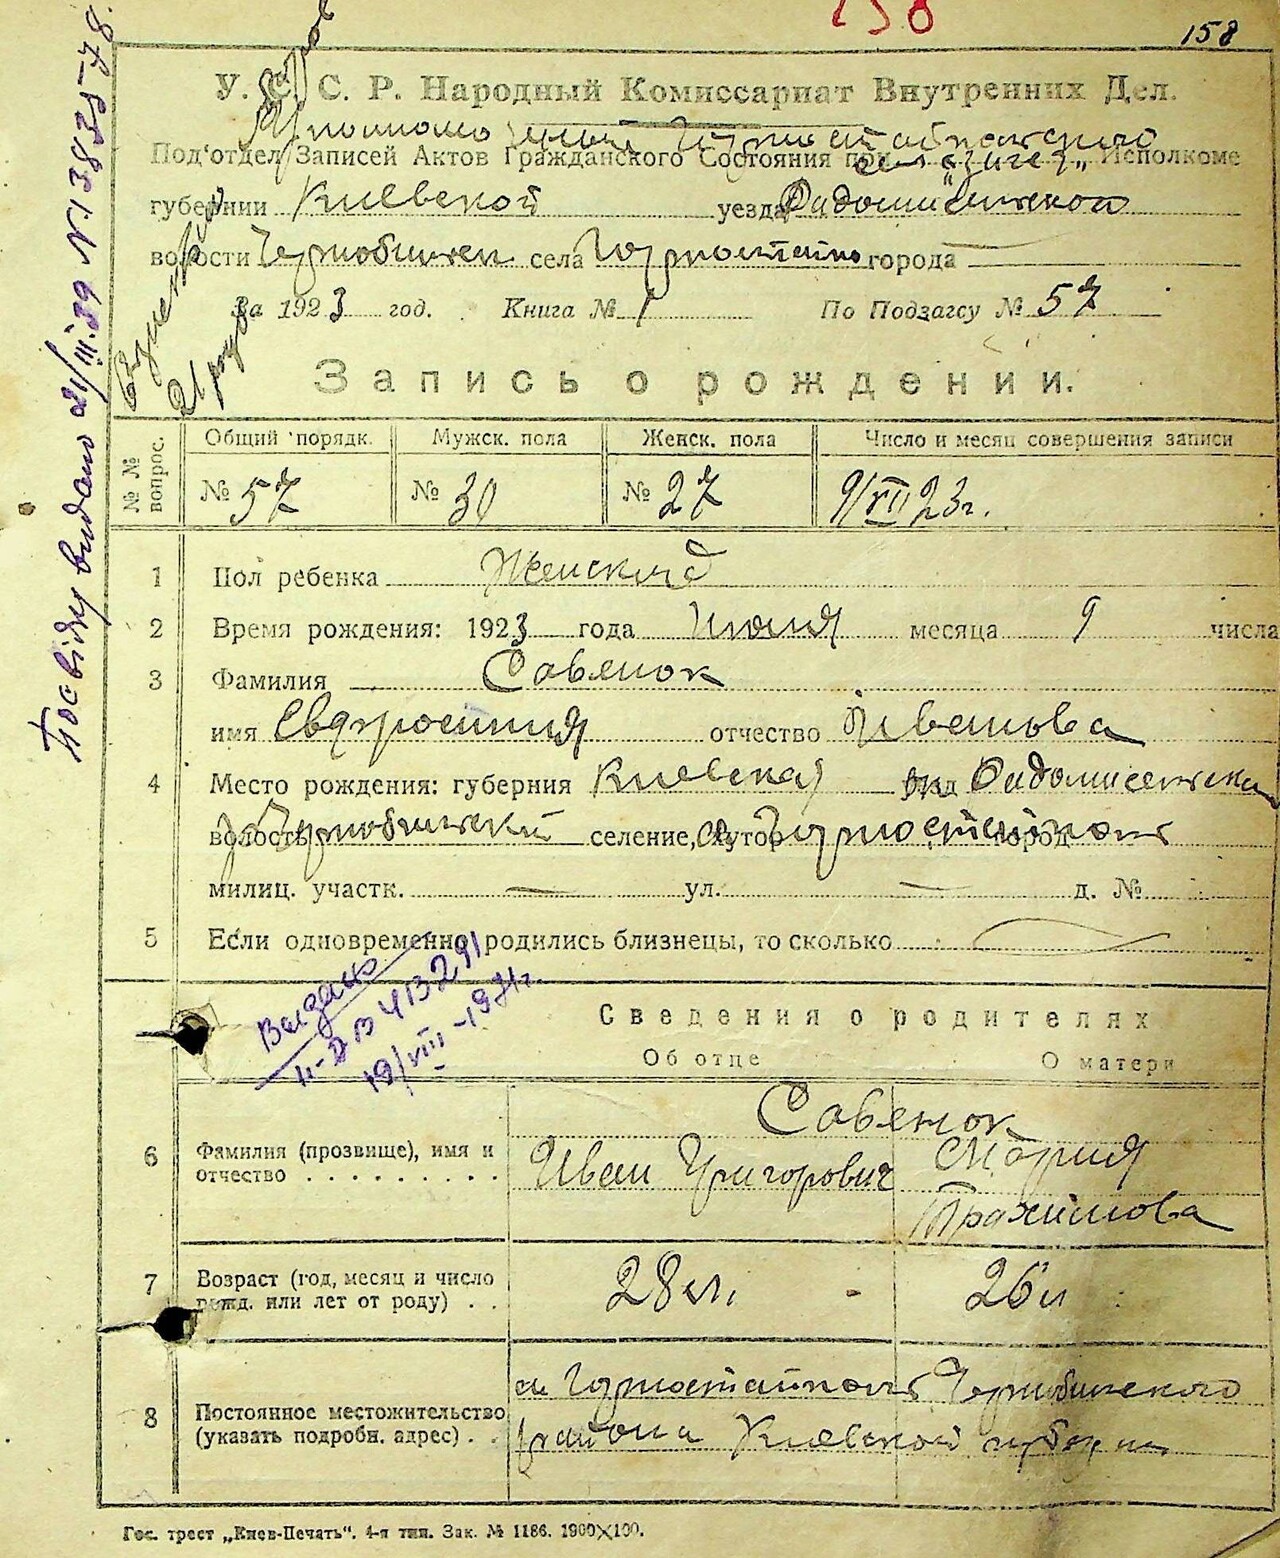 158
158
У. С. С. Р. Народный Комиссариат Внутренних Дел.
Под'отдел Записей Актов Гражданского Состояния при "Загсе" Исполкоме
губернии Киевской уезда Радомисельской
волости Чернобильск села Горностайпо города
За 1923 год. Книга № 1 По Подзагсу № 57
Запись о рождении.
№ № вопрос. Общий порядк. Мужск. пола Женск. пола Число и месяц совершения записи
№ 57 № 30 № 27 9/VII 23г.
1 Пол ребенка Женский
2 Время рождения: 1923 года Июля месяца 9 числа
3 Фамилия Савенок
имя Евдокия отчество Иванова
4 Место рождения: губерния Киевская Радомисельская
волость Чернобильский селение, хутор Горностайполь город
милиц. участк. — ул. — д. №
5 Если одновременно родились близнецы, то сколько
Выдано
II-БВ 413291
19/VIII-1971г.
Сведения о родителях
Об отце О матери
Савенок
6 Фамилия (прозвище), имя и отчество Иван Григорович Мария
Трохимова
7 Возраст (год, месяц и число рожд. или лет от роду) 28 л. 26 л
8 Постоянное местожительство (указать подробн. адрес) м. Горностайполь Чернобильского
района Киевской губернии
Посвідку видано 21/III.39 № 13835-78
Гос. трест „Киев-Печать". 4-я тип. Зак. № 1186. 1900×100.